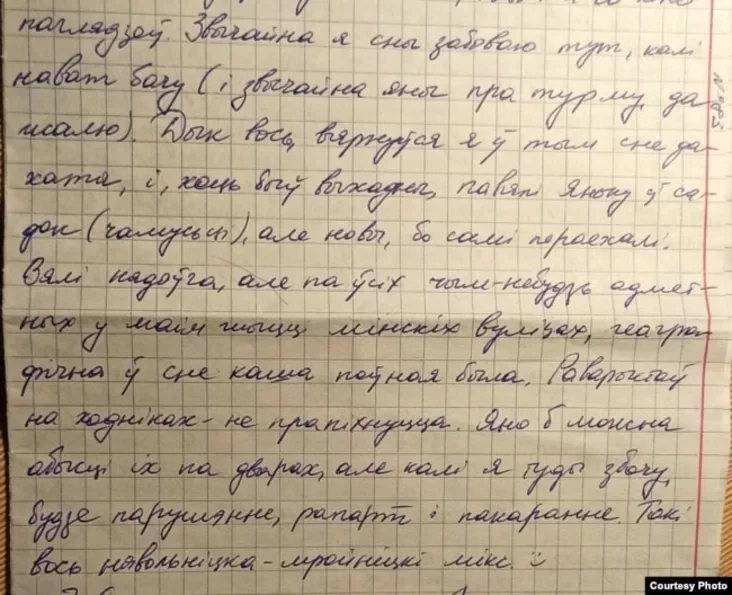 паглядзаў. Звычайна я сны забываю тут, калі
нават бачу (і звычайна яны пра турму, да
жалю). Дык вось, вярнуўся я ў тым сне да-
хаты, і, хоць быў выхадны, павялі Яньку ў са-
док (чамусьці), але новы, бо самі пераехалі.
Вялі нядоўга, але па ўсіх чым-небудзь адмет-
ных у маім жыцці мінскіх вуліцах, геагра-
фічна ў сне каша поўная была. Раварыстаў
на ходніках - не прапіхнуцца. Яно б можна
абысці іх па дварах, але калі я туды збочу,
будзе парушэнне, рапарт і пакаранне. Такі
вось нявольніцка-мройніцкі мікс :)
Courtesy Photo